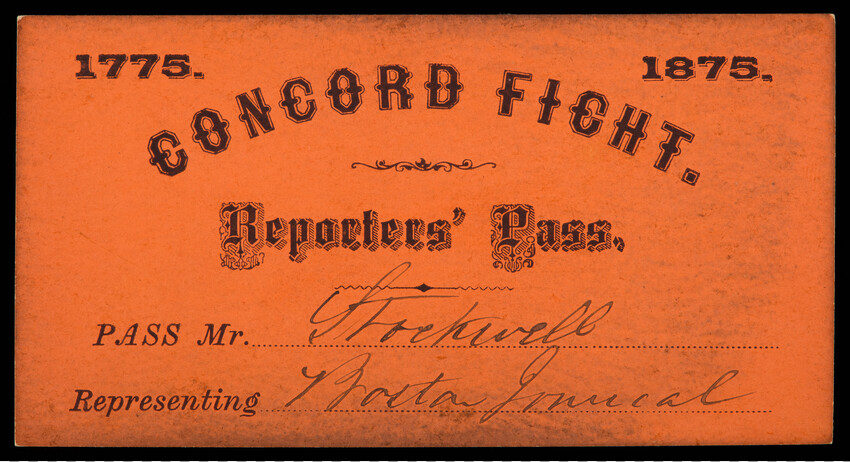 1775. 1875.
CONCORD FIGHT.
Reporters' Pass.
PASS Mr. Stockwell
Representing Boston Journal